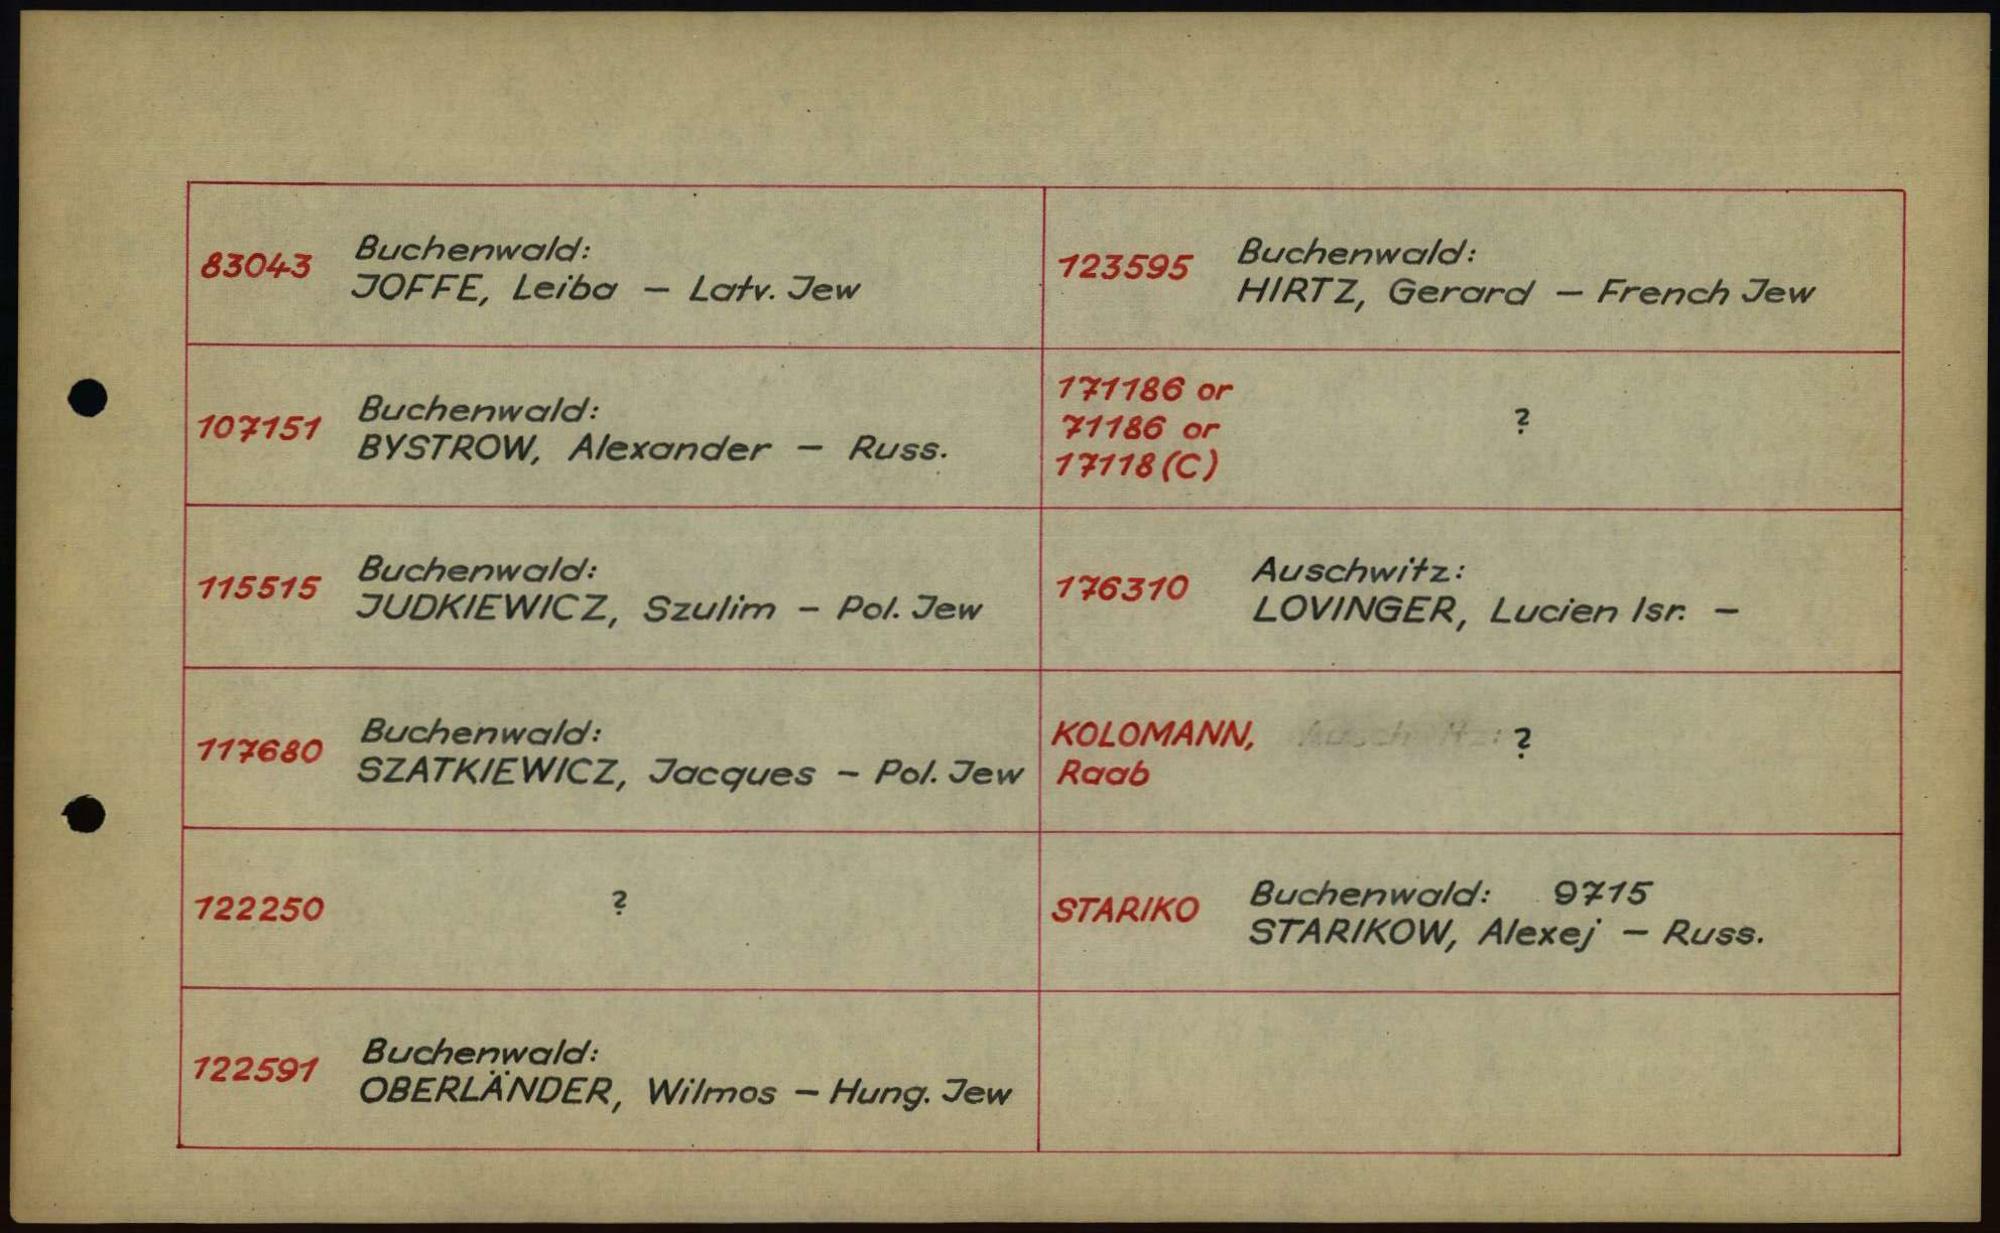 83043
Buchenwald:
JOFFE, Leiba – Latv. Jew
107151
Buchenwald:
BYSTROW, Alexander – Russ.
115515
Buchenwald:
JUDKIEWICZ, Szulim – Pol. Jew
117680
Buchenwald:
SZATKIEWICZ, Jacques – Pol. Jew
122250
?
122591
Buchenwald:
OBERLÄNDER, Wilmos – Hung. Jew
123595
Buchenwald:
HIRTZ, Gerard – French Jew
171186 or
71186 or
17118 (C)
?
176310
Auschwitz:
LOVINGER, Lucien Isr. –
KOLOMANN,
Raab
Auschwitz: ?
STARIKO
Buchenwald: 9715
STARIKOW, Alexej – Russ.